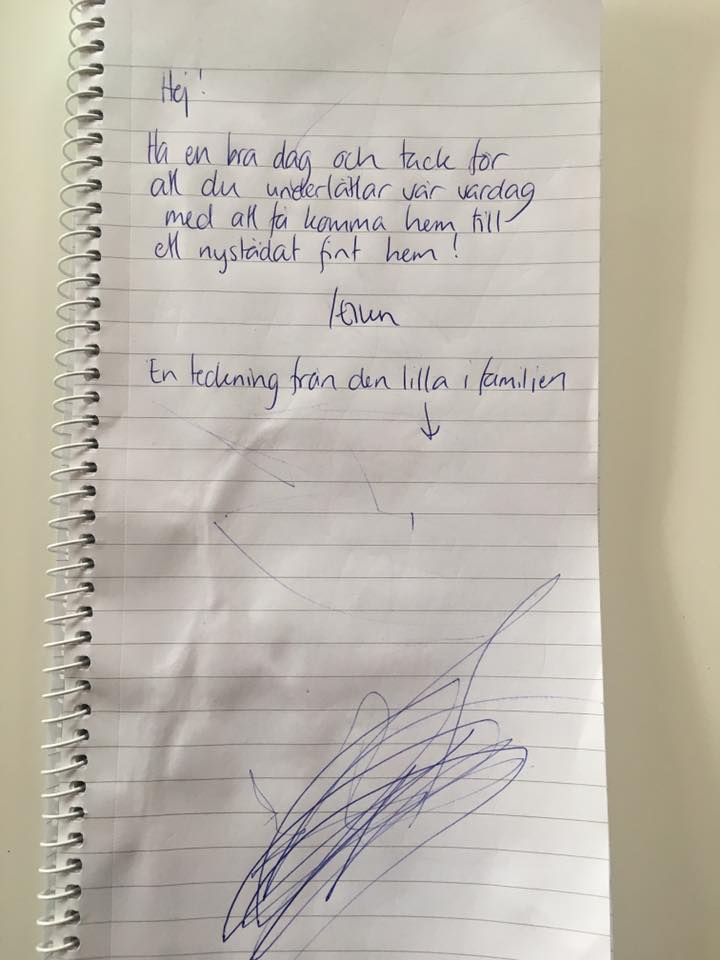 Hej!
Ha en bra dag och tack för
att du underlättar vår vardag
med att få komma hem till
ett nystädat fint hem!
En teckning från den lilla i familjen